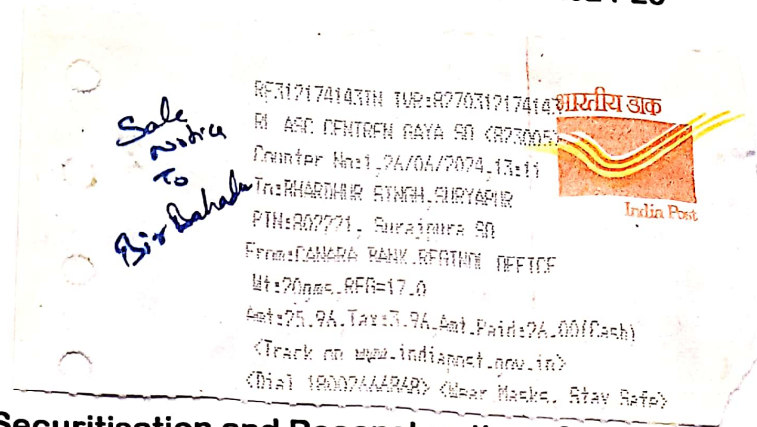 Sale
Notice
To
Bir Bahadu
RF312174143IN IVR:8270312174143
RL ASC CENTREN GAYA SO <823005>
Counter No:1,26/06/2024,13:11
To:BHARDHUR SINGH,SURYAPUR
PIN:802221, Surajpura SO
From:CANARA BANK,REGINOL OFFICE
Wt:20gms,REG=17.0
Amt:25.96,Tax:3.96,Amt.Paid:26.00(Cash)
<Track on www.indiapost.gov.in>
<Dial 18002666868> <Wear Masks, Stay Safe>
भारतीय डाक
India Post
Securitisation and